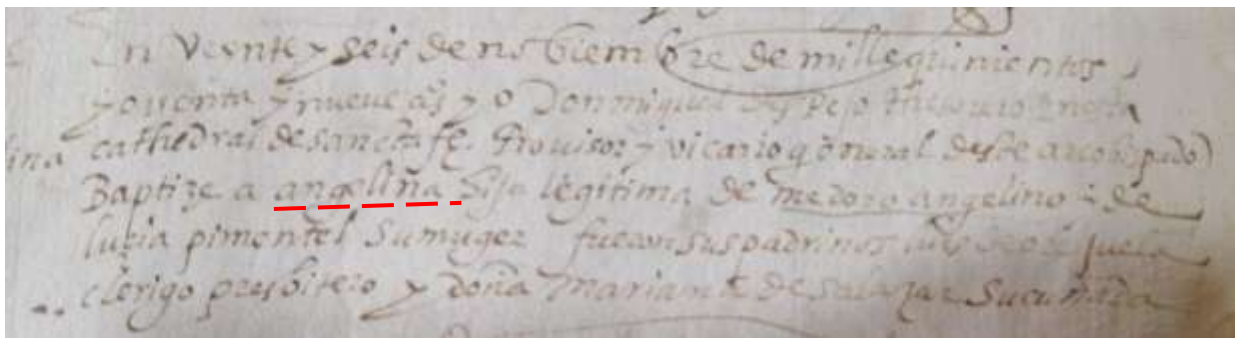 En Veynte y seis de nobiembre de mill e quinientos
y ochenta y nueve as yo Don miguel despejo thesorero en esta
ina cathedral de sancta fe. Provisor y vicario general deste arcobispado
Baptize a angelina hija legitima de medoro angelino y de
luzia pimentel su muger fueron sus padrinos luis
clerigo presbitero y doña mariana de salazar su cuñada